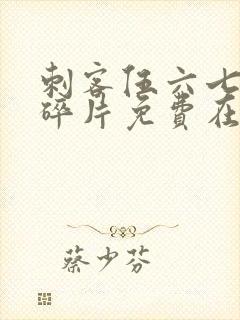 刺客伍六七
碎片免费在
蔡少芬